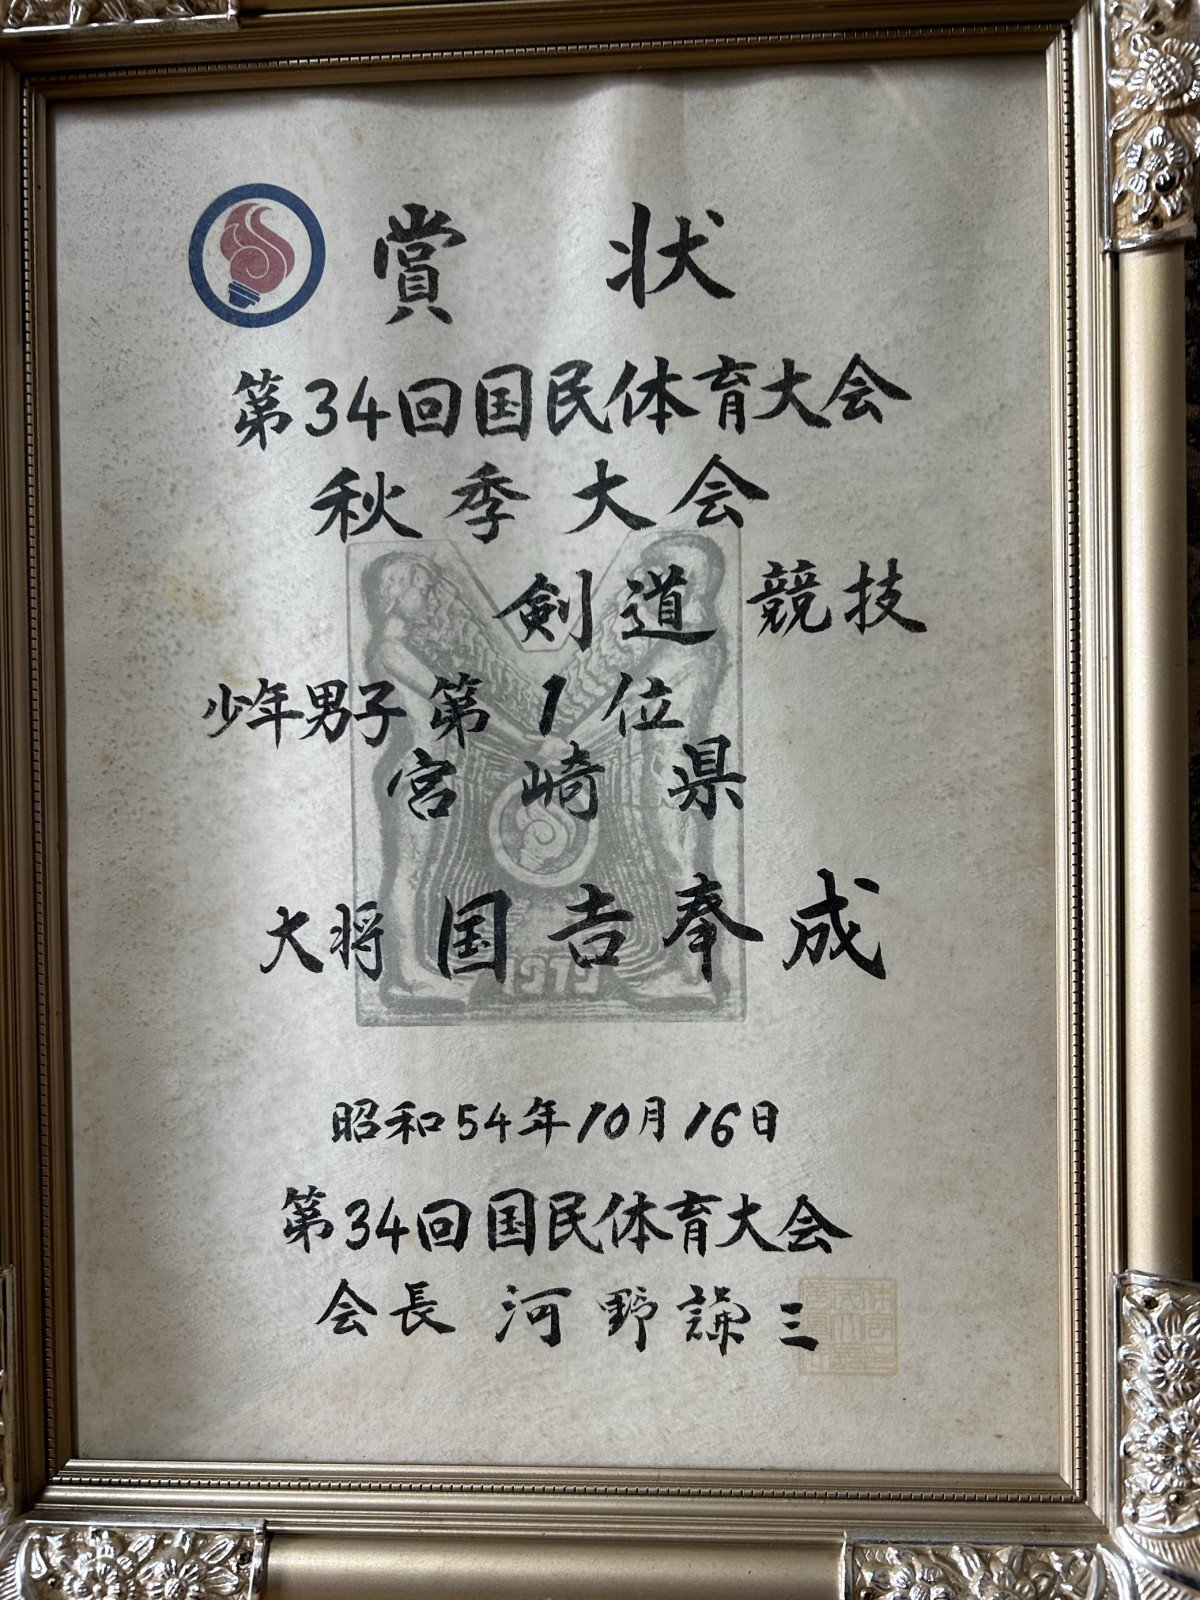 賞状
第34回国民体育大会
秋季大会
剣道競技
少年男子 第1位
宮崎県
大将 国吉奉成
1979
昭和54年10月16日
第34回国民体育大会
会長 河野謙三